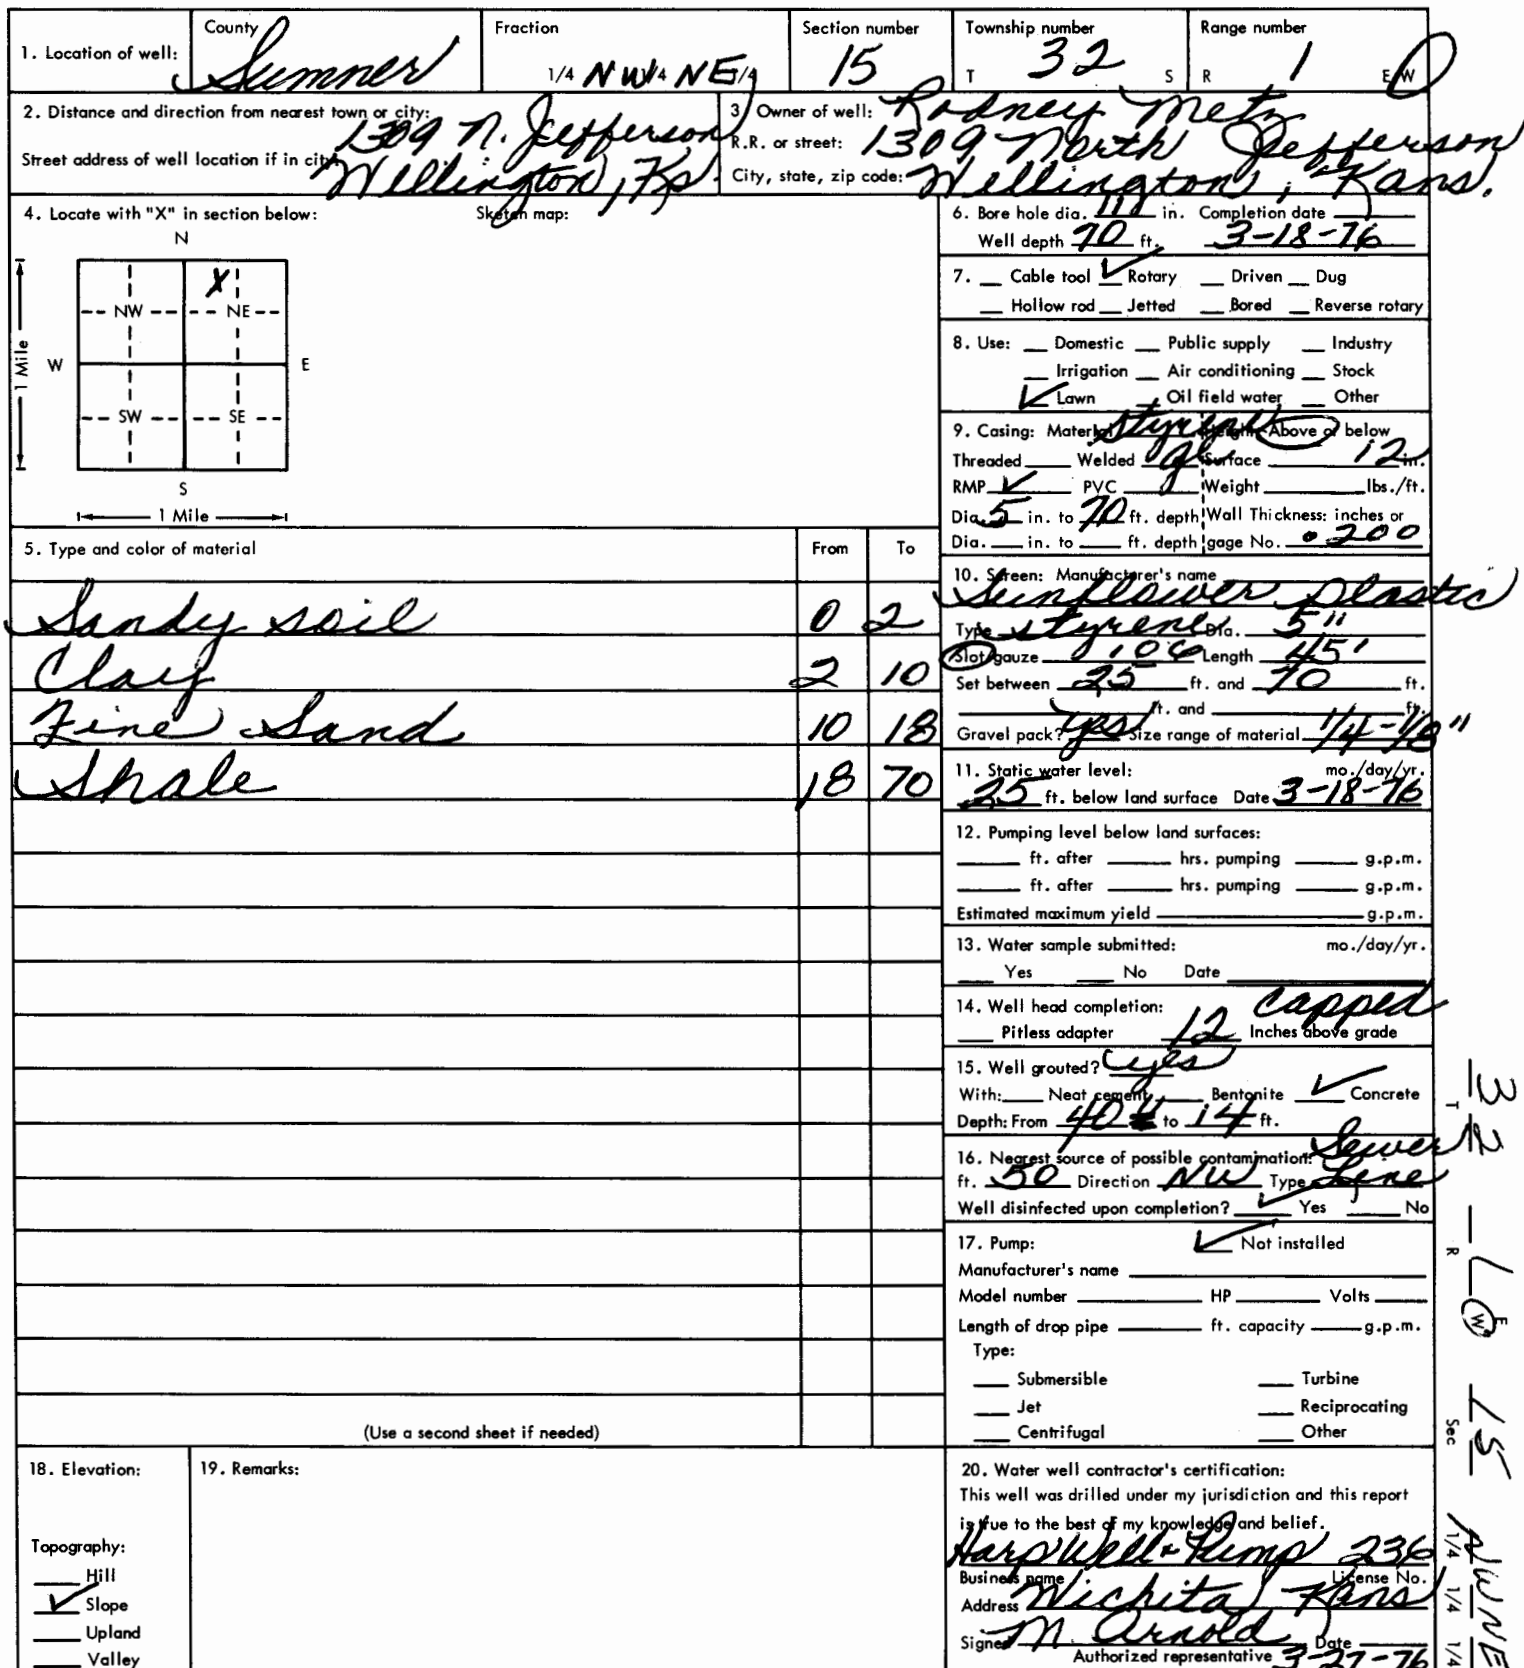 1. Location of well: County Sumner Fraction 1/4 NW 1/4 NE 1/4 Section number 15 Township number T 32 S Range number R 1 E/W
2. Distance and direction from nearest town or city: 1309 N. Jefferson
Street address of well location if in city: Wellington, Ks.
3. Owner of well: Rodney Metz
R.R. or street: 1309 North Jefferson
City, state, zip code: Wellington, Kans.
4. Locate with "X" in section below: Sketch map:
N
X
NW NE
W E
1 Mile
SW SE
S
1 Mile
5. Type and color of material From To
Sandy soil 0 2
Clay 2 10
Fine Sand 10 18
Shale 18 70
(Use a second sheet if needed)
6. Bore hole dia. 11 in. Completion date
Well depth 70 ft. 3-18-76
7. Cable tool ✓ Rotary Driven Dug
Hollow rod Jetted Bored Reverse rotary
8. Use: Domestic Public supply Industry
Irrigation Air conditioning Stock
✓ Lawn Oil field water Other
9. Casing: Material styrene Height: Above or below
Threaded Welded gl Surface 12 in.
RMP ✓ PVC Weight lbs./ft.
Dia. 5 in. to 70 ft. depth Wall Thickness: inches or
Dia. in. to ft. depth gage No. .200
10. Screen: Manufacturer's name
Sunflower plastic
Type styrene Dia. 5"
Slot/gauze Length 45'
Set between 25 ft. and 70 ft.
ft. and ft.
Gravel pack? yes Size range of material 1/4-1/8"
11. Static water level: mo./day/yr.
25 ft. below land surface Date 3-18-76
12. Pumping level below land surfaces:
ft. after hrs. pumping g.p.m.
ft. after hrs. pumping g.p.m.
Estimated maximum yield g.p.m.
13. Water sample submitted: mo./day/yr.
Yes No Date
14. Well head completion: capped
Pitless adapter 12 Inches above grade
15. Well grouted? yes
With: Neat cement Bentonite ✓ Concrete
Depth: From 40" to 14 ft.
16. Nearest source of possible contamination: Sewer
ft. 50 Direction NW Type Line
Well disinfected upon completion? ✓ Yes No
17. Pump: ✓ Not installed
Manufacturer's name
Model number HP Volts
Length of drop pipe ft. capacity g.p.m.
Type:
Submersible Turbine
Jet Reciprocating
Centrifugal Other
18. Elevation:
Topography:
Hill
✓ Slope
Upland
Valley
19. Remarks:
20. Water well contractor's certification:
This well was drilled under my jurisdiction and this report
is true to the best of my knowledge and belief.
Harp Well & Pump 236
Business name License No.
Address Wichita Kans
Signed M. Arnold Date
Authorized representative 3-27-76
T 32 R 1 E W Sec 15 1/4 1/4 1/4 NWNE